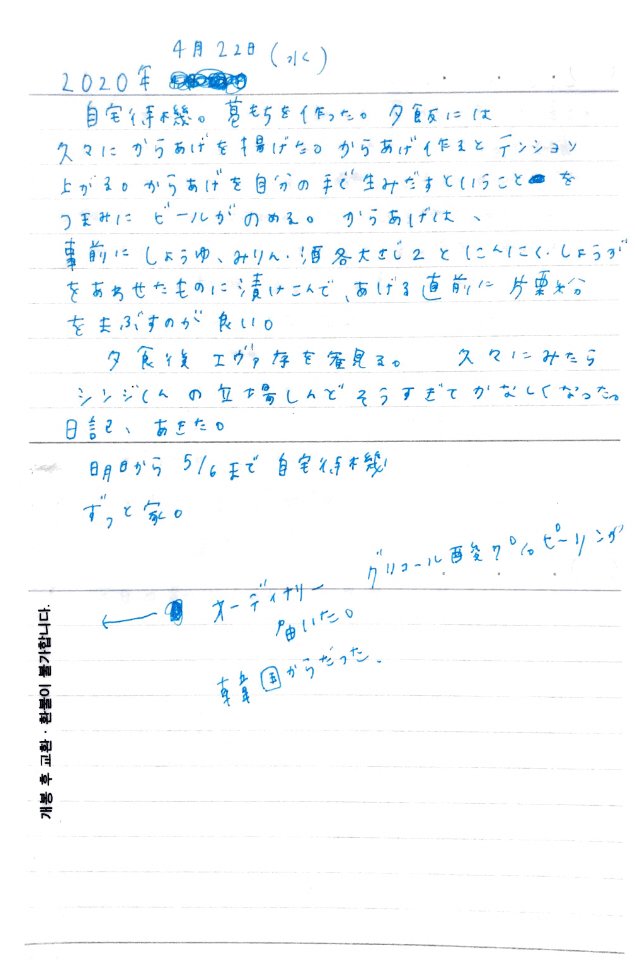 4月22日(水)
2020年
自宅待機。葛もちを作った。夕飯には
久々にからあげを揚げた。からあげ作るとテンション
上がる。からあげを自分の手で生みだすということを
つまみにビールがのめる。からあげは、
事前にしょうゆ、みりん・酒各大さじ2とにんにく・しょうが
をあわせたものに漬けこんで、あげる直前に片栗粉
をまぶすのが良い。
夕食後エヴァ序を見る。 久々にみたら
シンジくんの立場しんどそうすぎてかなしくなった。
日記、あきた。
明日から5/6まで自宅待機
ずっと家。
グリコール酸7%ピーリング
← オーディナリー
届いた。
韓国からだった。
개봉 후 교환·환불이 불가합니다.